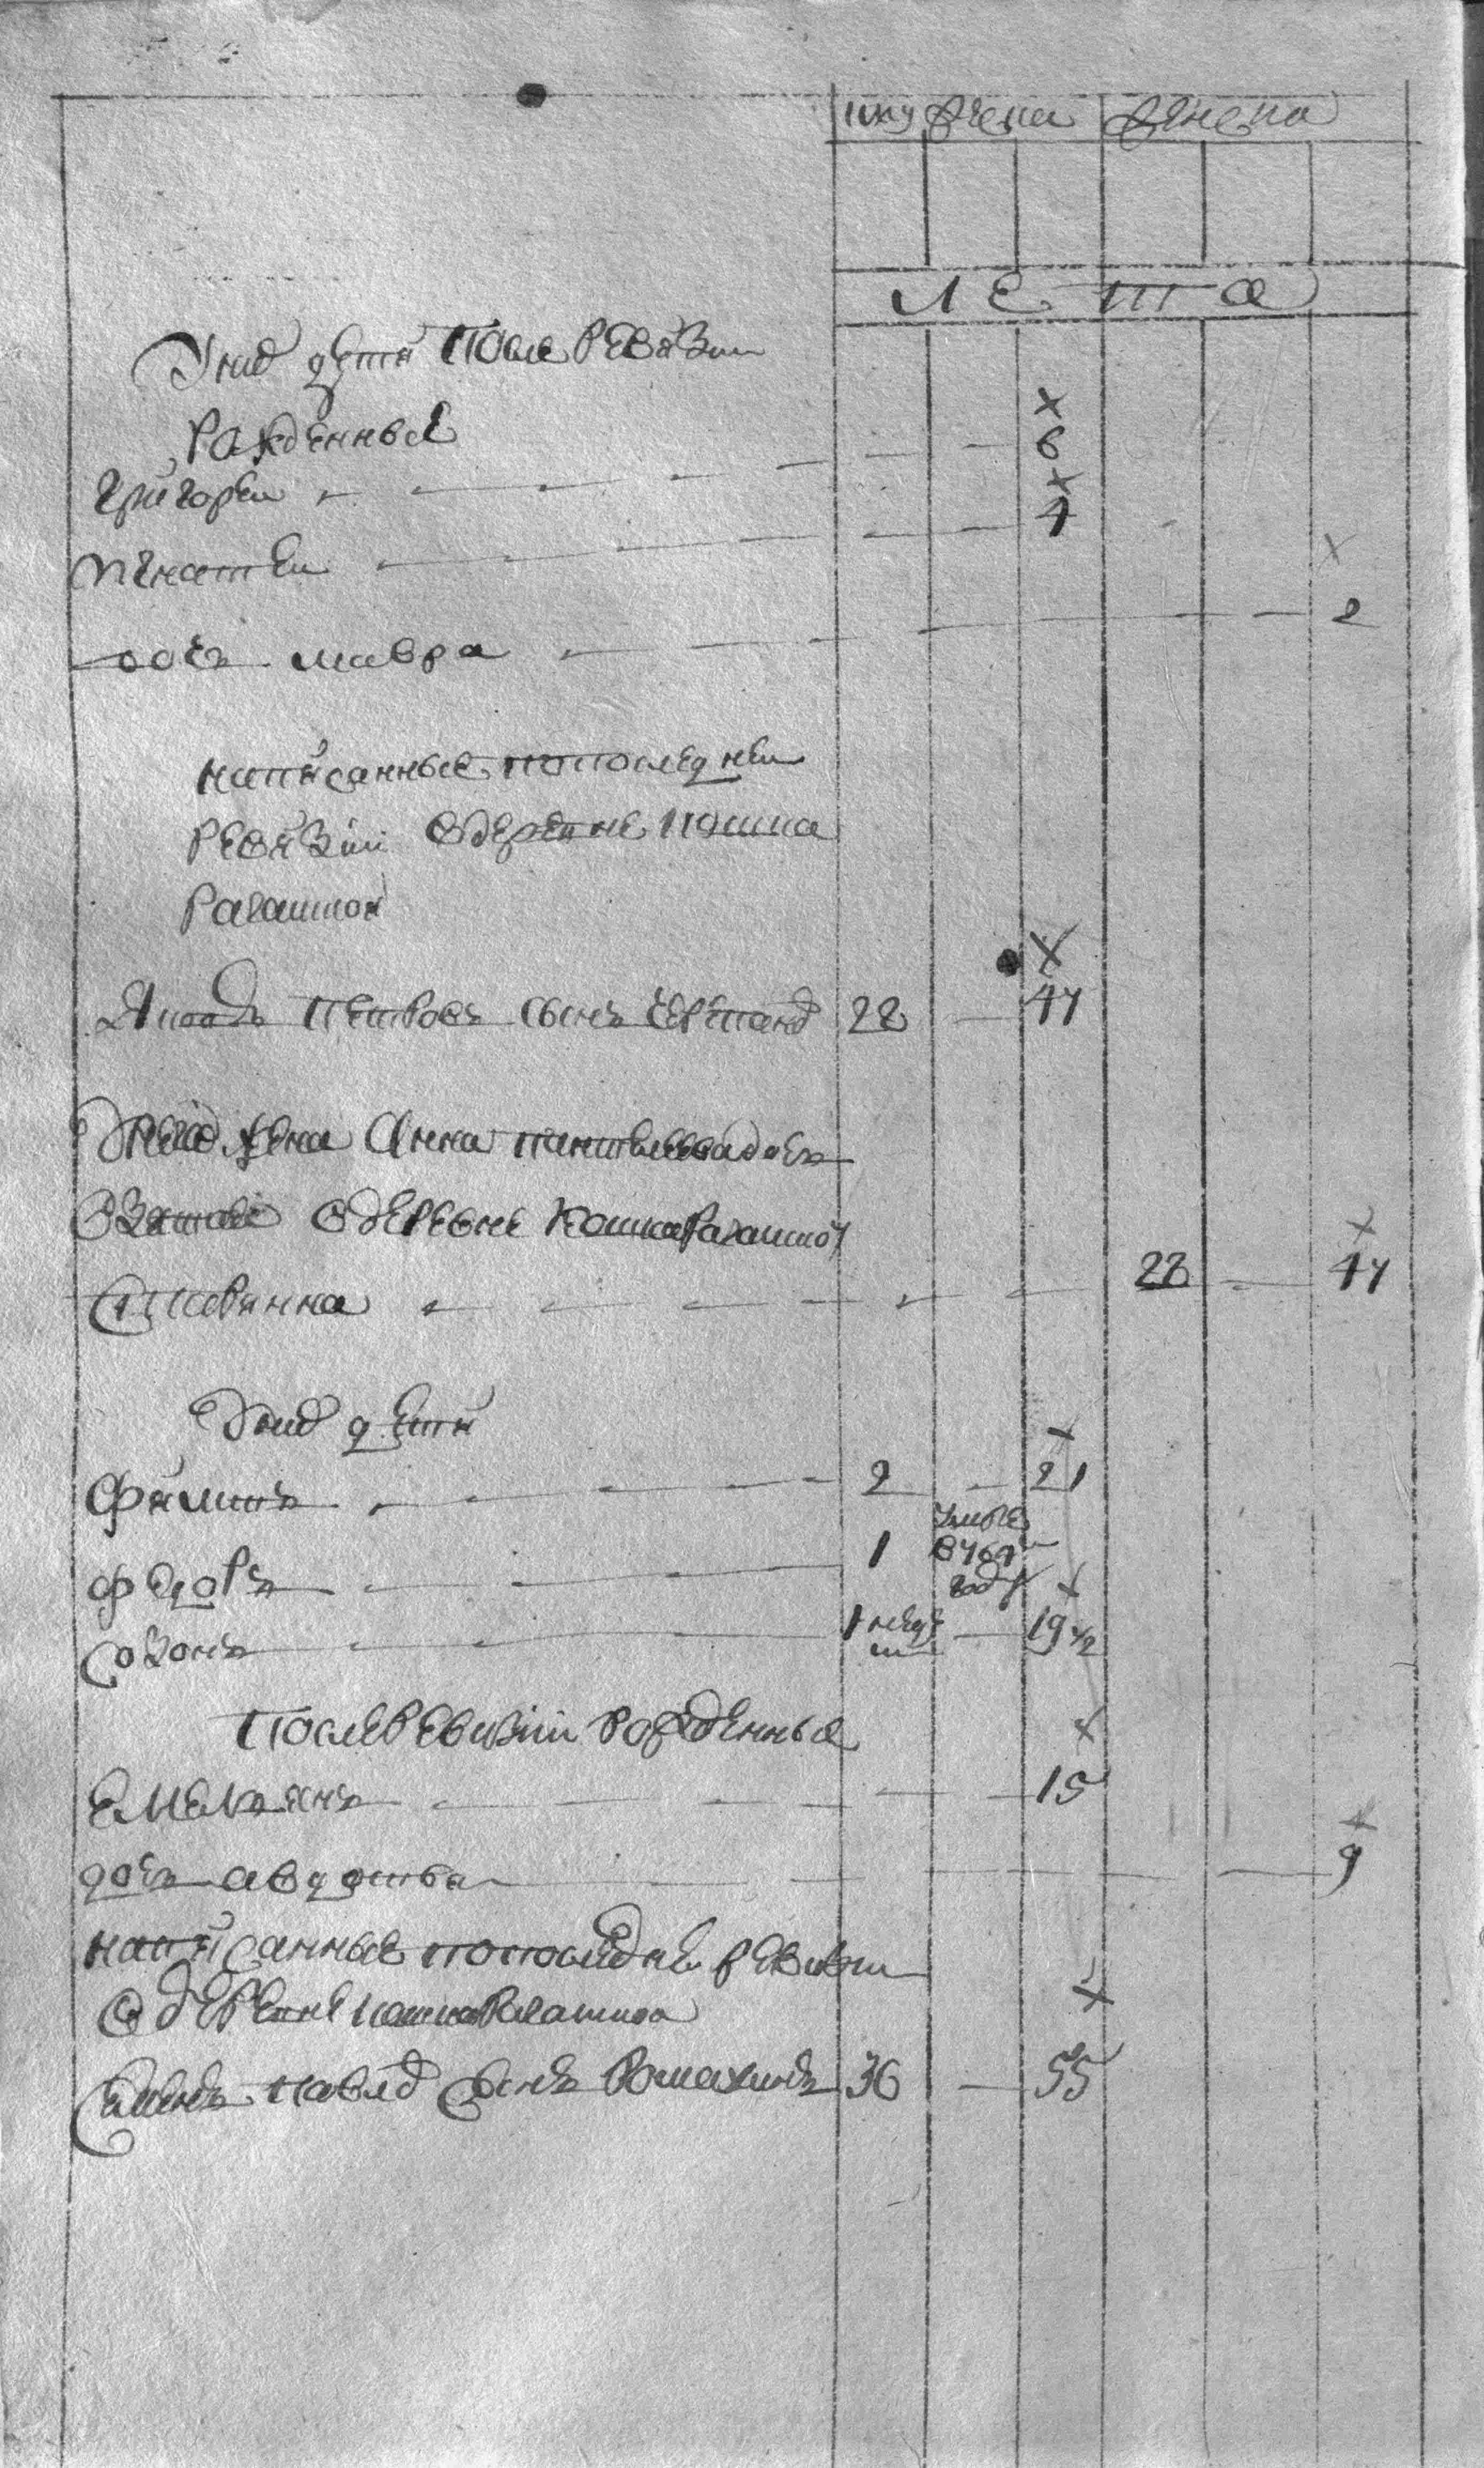 мужеска женска
лета
У них дети после ревизии
рожденные
Григореи 6
Игнатеи 4
дочь мавра 2
написанные по последнеи
ревизии в деревне кошка
рагашкой
Яков Петровъ сынъ 28 47
У него жена Анна дочь
взятая в деревне кошкарагашкой
старинная 28 47
У них дети
Филипъ 2 21
умре
Федоръ 1 в 769
году
Созонъ 1 недели 19 1/2
После ревизии рожденные
Емельянъ 15
дочь авдотья 9
написанные по последней ревизии
в деревне кошкарагашкой
Семенъ павлов сынъ 36 55